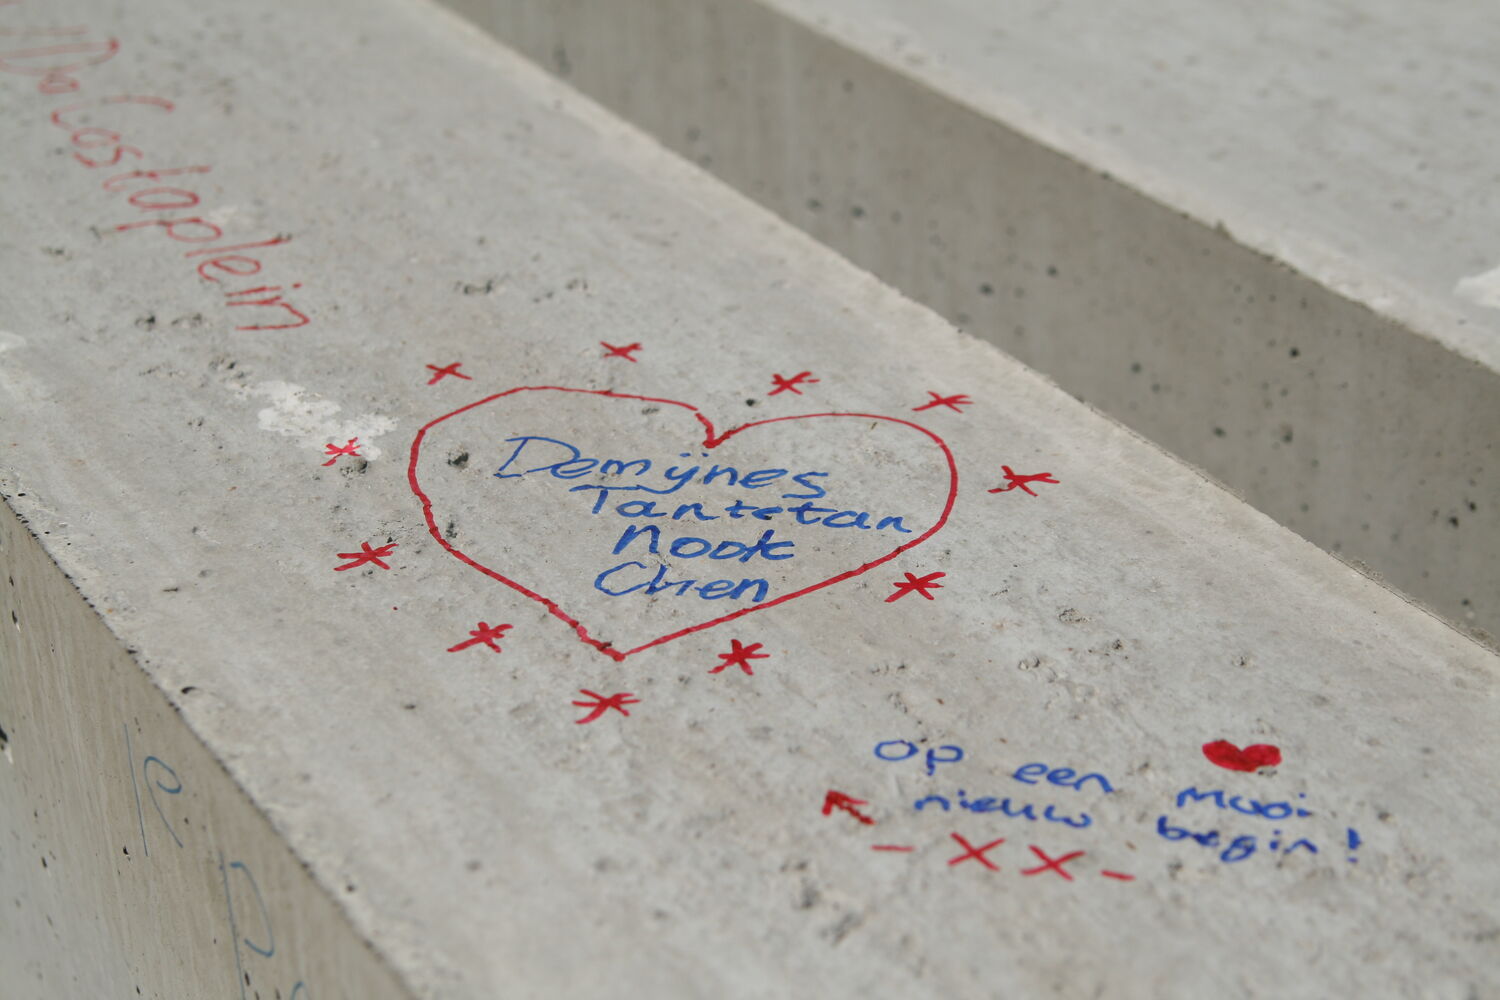 Da Costaplein
Demijnes
Tantetan
nook
Chen
op een mooi
nieuw begin!
- X X -